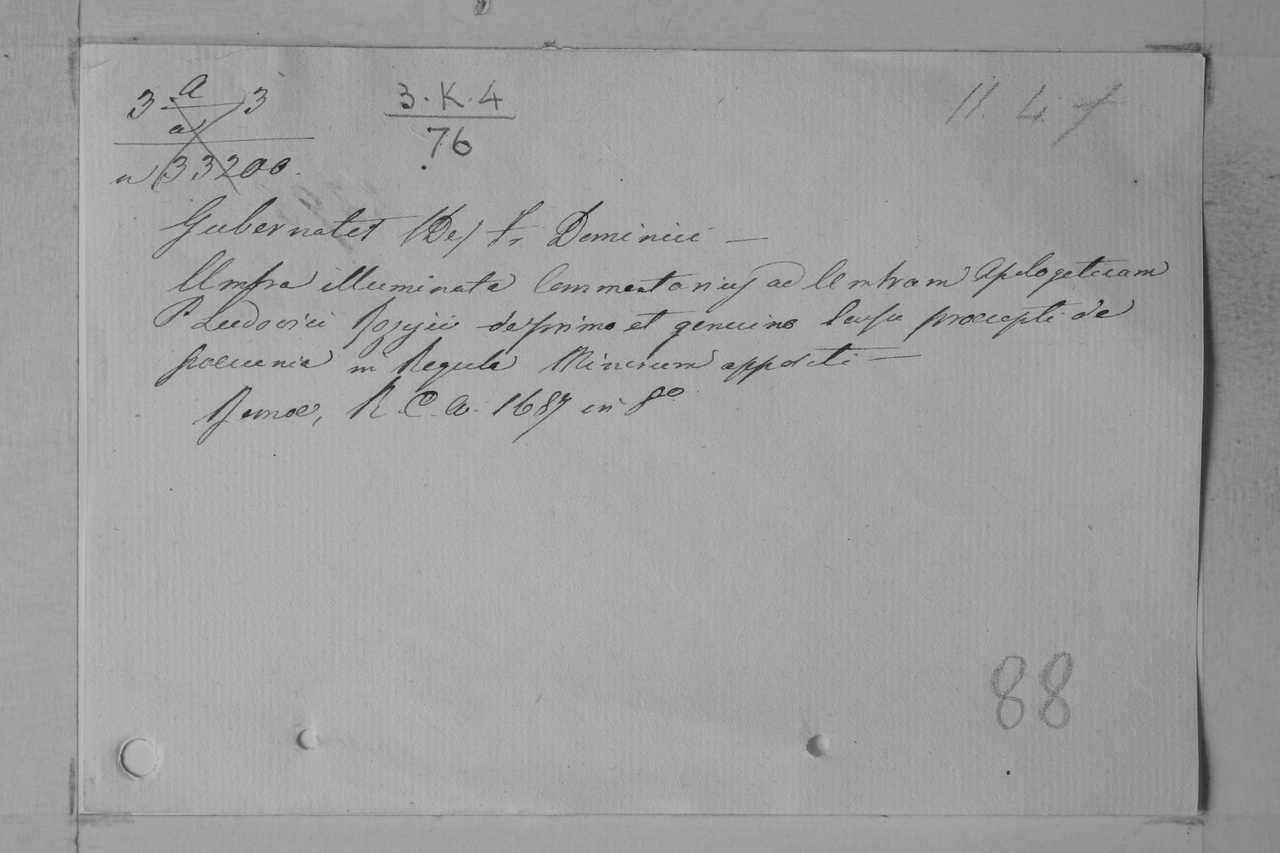 3 a 3
a
n 33200.
3.K.4
76
11. 4. f
Gubernatis (De) Fr Dominici —
Umbra illuminata Commentarius ad Umbram Apologeticam
P Ludovici de primo et genuino sensu praecepti de
pecunia in Regula Minorum appositi —
Romae, R. C. A. 1687 in 8o
88